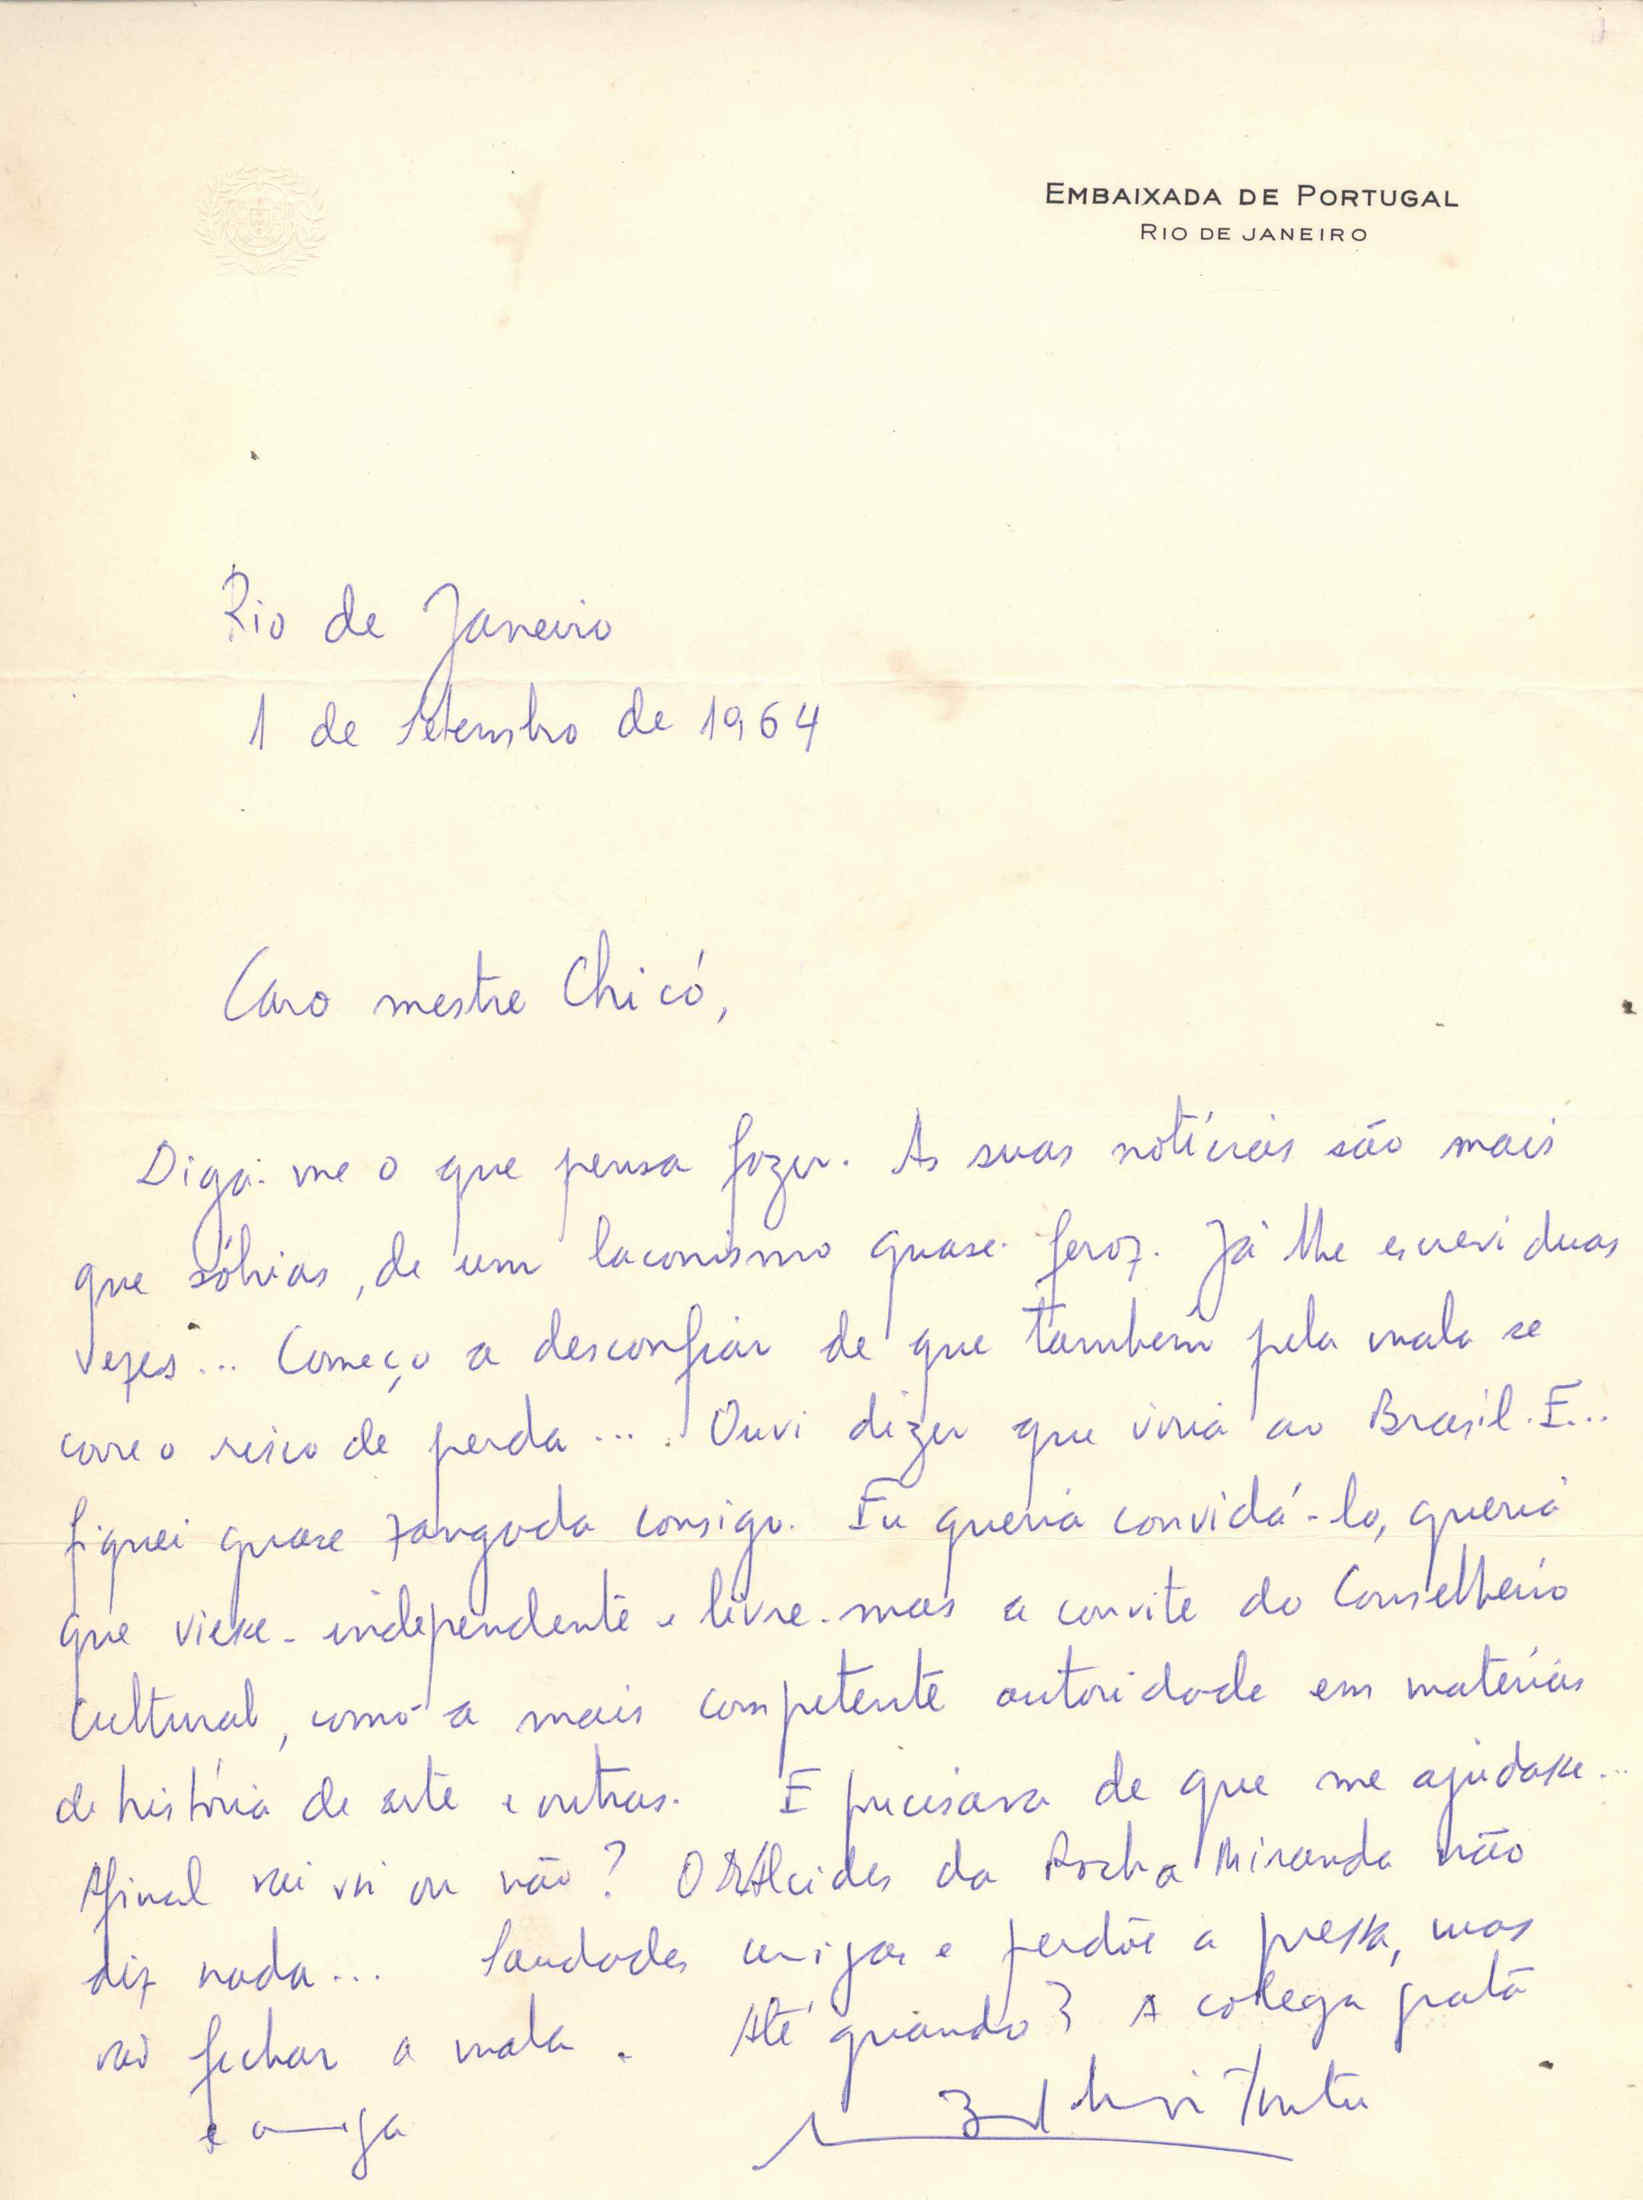 EMBAIXADA DE PORTUGAL
RIO DE JANEIRO
Rio de Janeiro
1 de Setembro de 1964
Caro mestre Chicó,
Diga-me o que pensa fazer. As suas notícias são mais
que sóbrias, de um laconismo quase feroz. Já lhe escrevi duas
vezes... Começo a desconfiar de que também pela mala se
corre o risco de perda... Ouvi dizer que viria ao Brasil. E...
fiquei quase zangada consigo. Eu queria convidá-lo, queria
que viesse - independente e livre - mas a convite do Conselheiro
Cultural, como a mais competente autoridade em matérias
de história de arte e outras. E precisava de que me ajudasse...
Afinal vai vir ou não? O Alcides da Rocha Miranda não
diz nada... Saudades amigas e perdoe a pressa, mas
vão fechar a mala. Até quando? A colega grata
e amiga